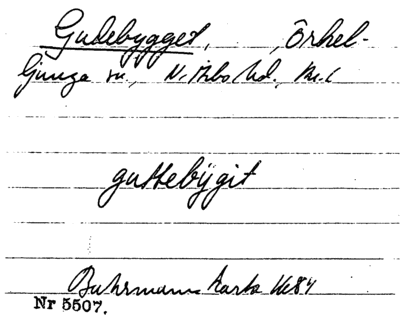 Gudebygget, , Örkel-
ljunga sn., N. Åsbo hd., Kr. l
guttebÿgit
Buhrmanns karta 1684
Nr 5507.